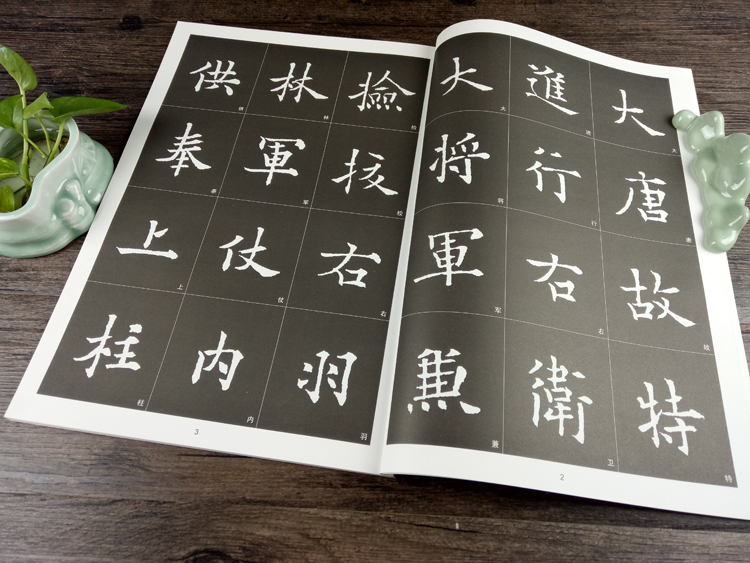 大唐故特
大唐故特
進行右衛
进行右卫
大将軍兼
大将军兼
2
撿挍右羽
检校右羽
林軍仗内
林军仗内
供奉上柱
供奉上柱
3